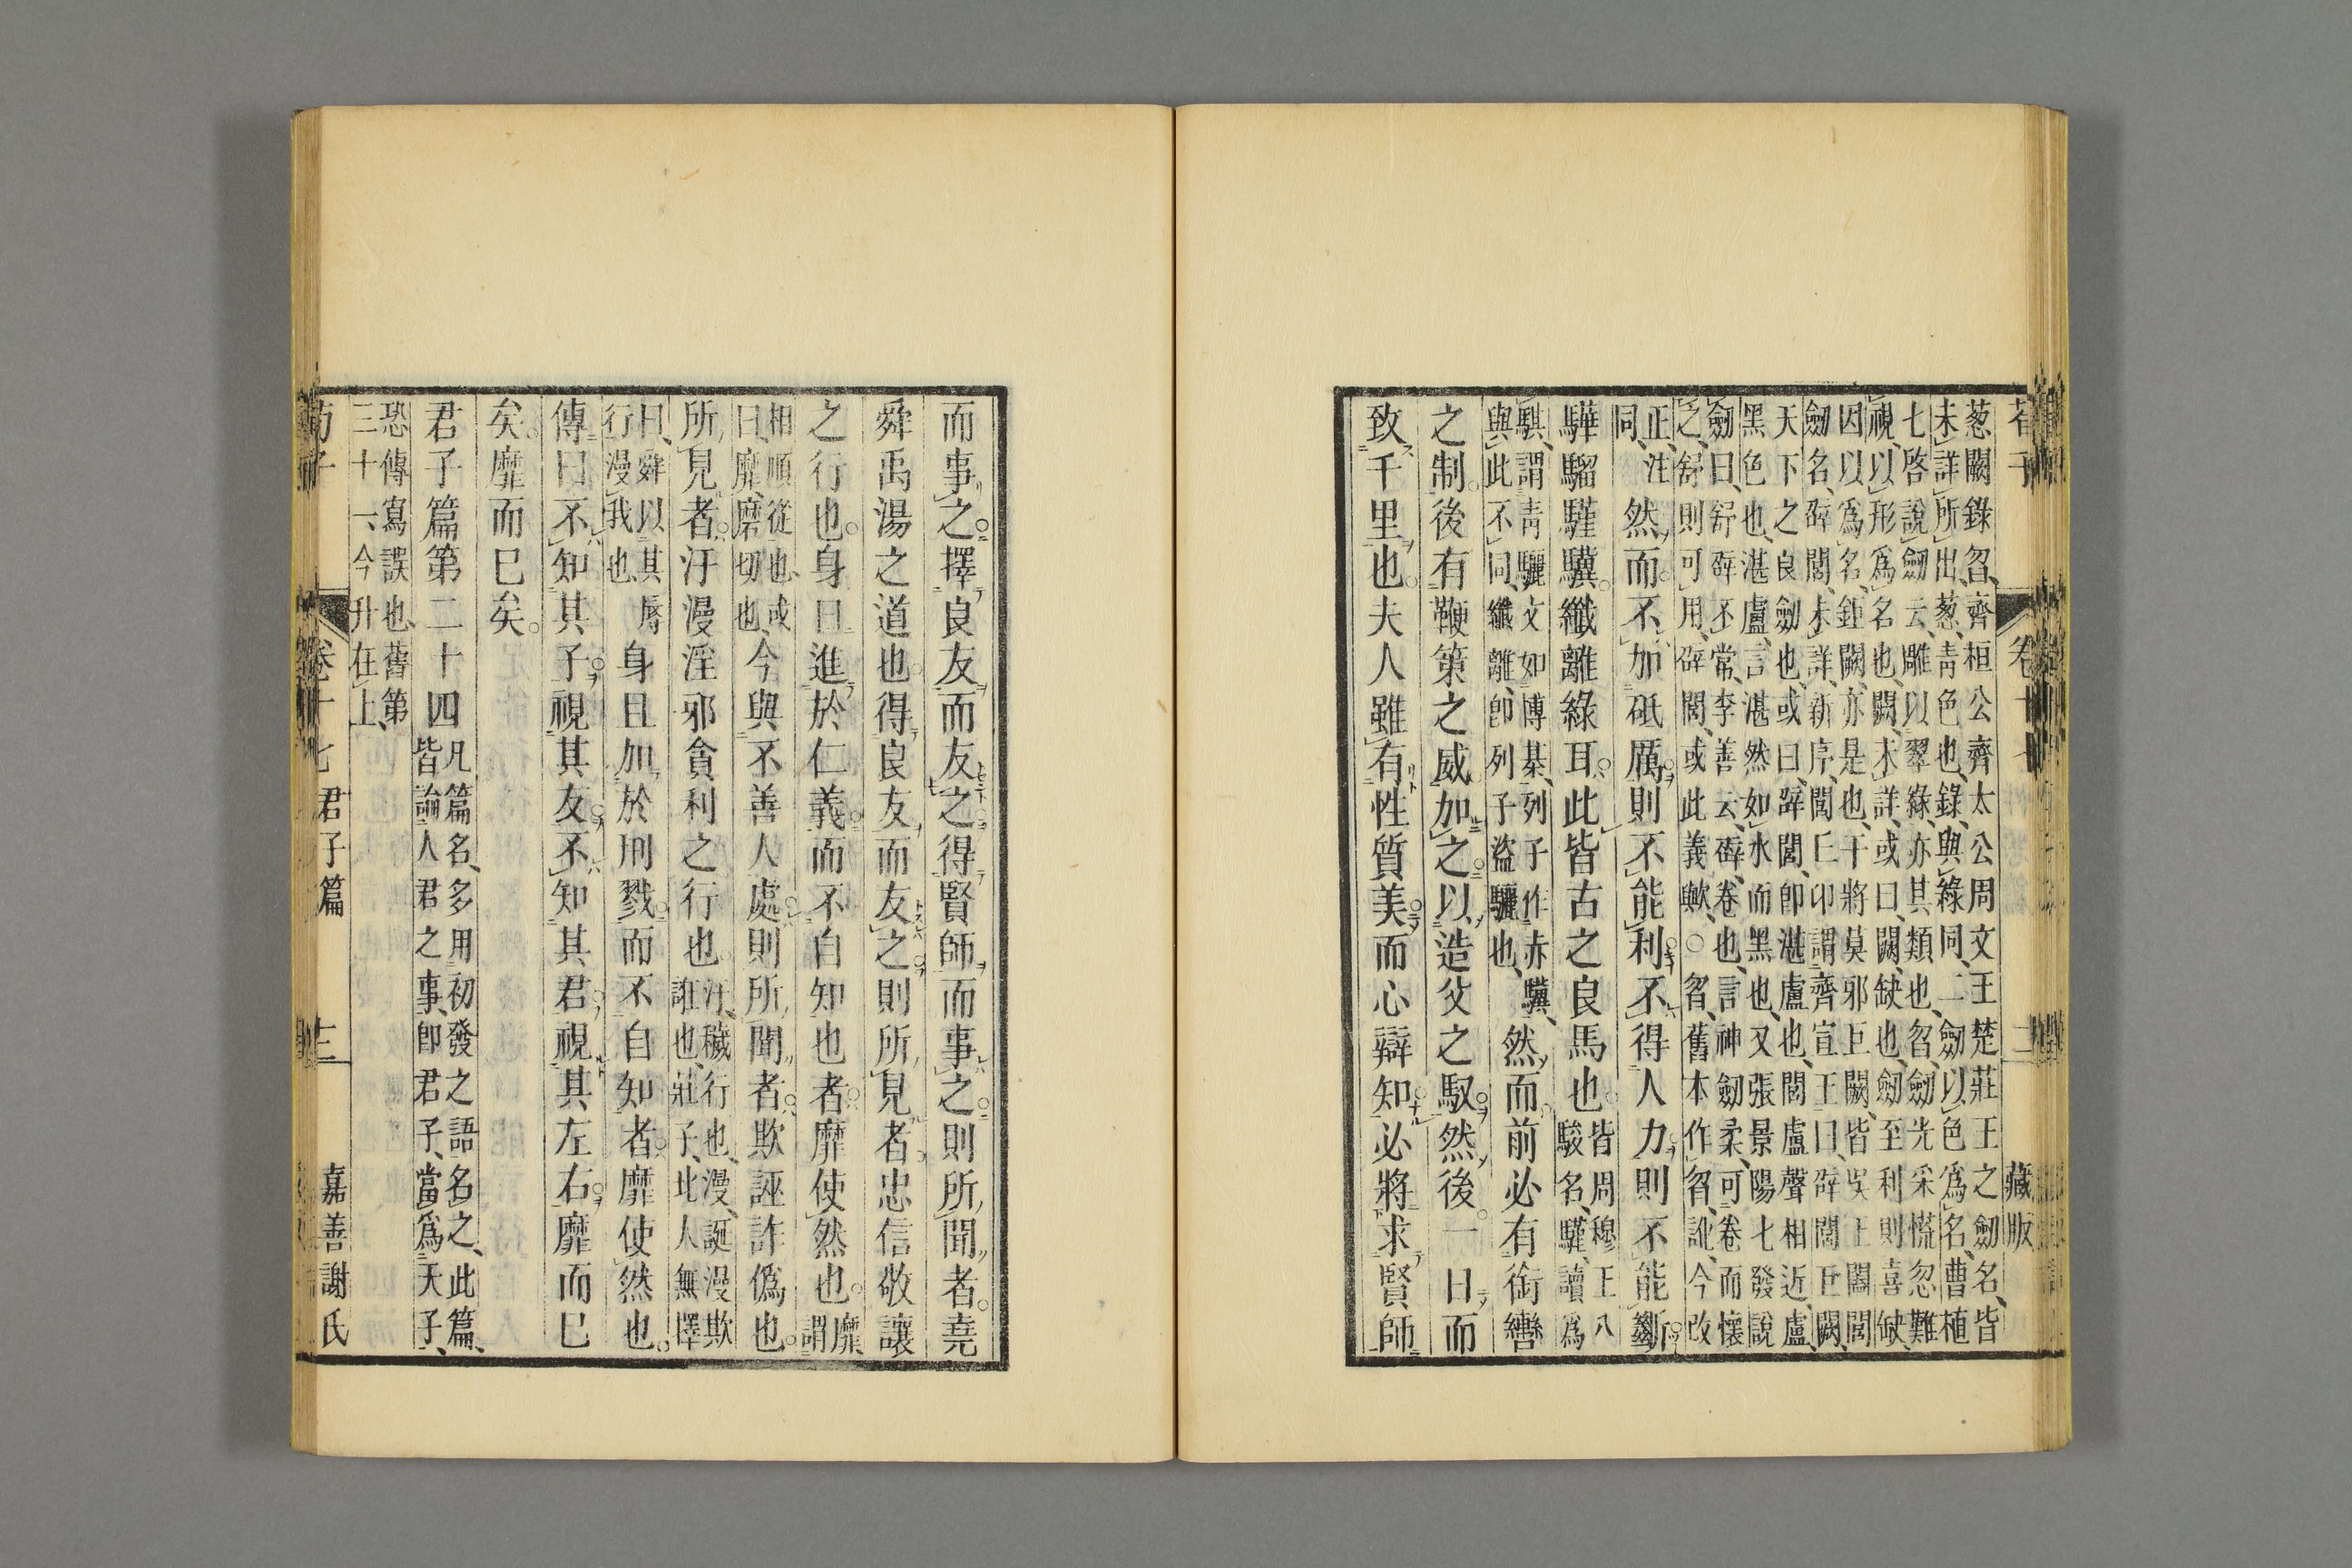 荀子
卷十七
二
藏版
葱闕錄曶齊桓公齊太公周文王楚莊王之劒名皆
未詳所出葱青色也錄與綠同二劒以色爲名曹植
七啓說劒云雕以翠綠亦其類也曶劒光采慌忽難
視以形爲名也闕未詳或曰闕缺也劒至利則喜缺
因以爲名鉅闕亦是也干將莫邪巨闕皆吳王闔閭
劒名辟閭未詳新序閭丘卬謂齊宣王曰辟閭巨闕
天下之良劒也或曰辟閭卽湛盧也閭盧聲相近盧
黑色也湛盧言湛然如水而黑也又張景陽七發說
劒曰舒辟不常李善云辟卷也言神劒柔可卷而懷
之舒則可用辟閭或此義歟○曶舊本作曶訛今改
正注
同
然而不加砥厲則不能利不得人力則不能斷
驊騮驥纖離綠耳此皆古之良馬也
皆周穆王八
駿名驥讀爲
騏謂青驪文如博棊列子作赤驥
與此不同纖離卽列子盜驪也
然而前必有銜轡
之制後有鞭策之威加之以造父之馭然後一日而
致千里也夫人雖有性質美而心辯知必將求賢師
而事之擇良友而友之得賢師而事之則所聞者堯
舜禹湯之道也得良友而友之則所見者忠信敬讓
之行也身日進於仁義而不自知也者靡使然也
靡謂
相順從也或
曰靡磨切也
今與不善人處則所聞者欺誣詐僞也
所見者汙漫淫邪貪利之行也
汙穢行也漫誕漫欺
誑也莊子北人無擇
曰舜以其辱
行漫我也
身且加於刑戮而不自知者靡使然也
傳曰不知其子視其友不知其君視其左右靡而已
矣靡而已矣
君子篇第二十四
凡篇名多用初發之語名之此篇
皆論人君之事卽君子當爲天子
恐傳寫誤也舊第
三十一今升在上
荀子
卷十七
君子篇
十二
嘉善謝氏